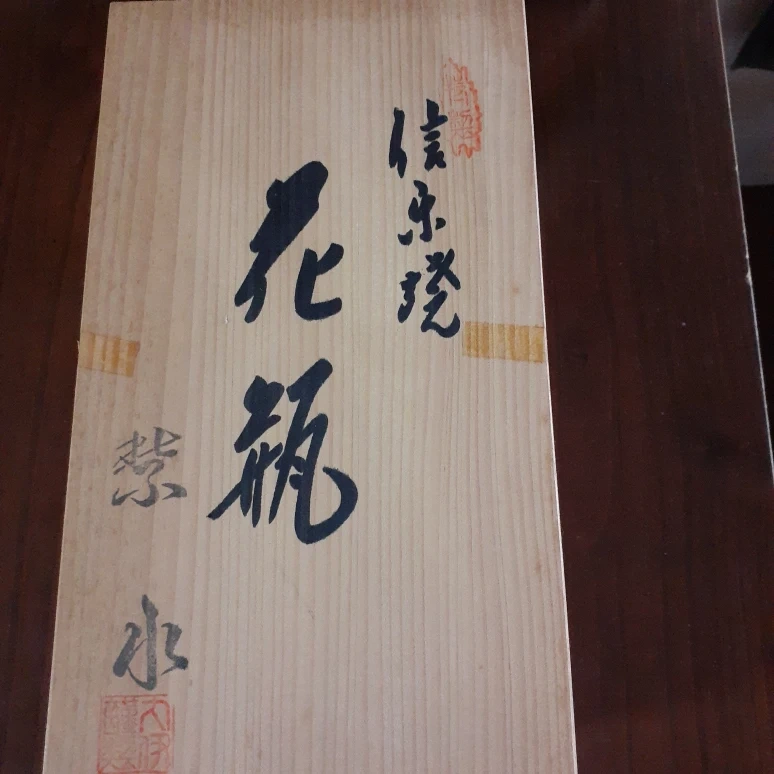 信楽焼
花瓶
紫水